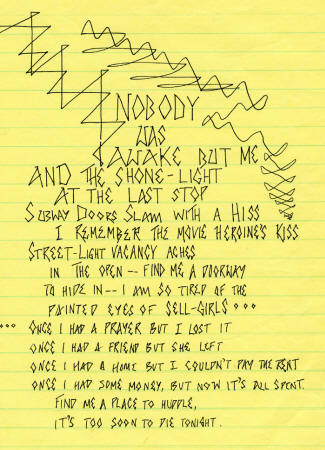 NOBODY
WAS
AWAKE BUT ME
AND THE SHONE-LIGHT
AT THE LAST STOP
SUBWAY DOORS SLAM WITH A HISS
I REMEMBER THE MOVIE HEROINE'S KISS
STREET-LIGHT VACANCY ACHES
IN THE OPEN -- FIND ME A DOORWAY
TO HIDE IN -- I AM SO TIRED OF THE
PAINTED EYES OF SELL-GIRLS ...
... ONCE I HAD A PRAYER BUT I LOST IT
ONCE I HAD A FRIEND BUT SHE LEFT
ONCE I HAD A HOME BUT I COULDN'T PAY THE RENT
ONCE I HAD SOME MONEY, BUT NOW IT'S ALL SPENT.
FIND ME A PLACE TO HUDDLE,
IT'S TOO SOON TO DIE TONIGHT.